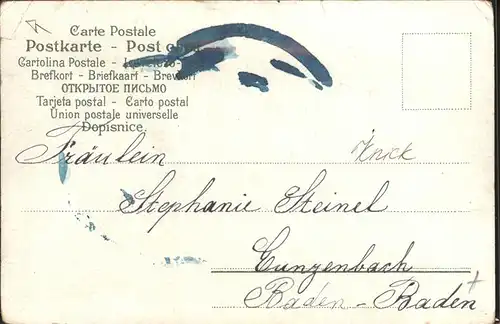 Carte Postale
Postkarte - Post card
Cartolina Postale -
Brefkort - Briefkaart - Brevkort
ОТКРЫТОЕ ПИСЬМО
Tarjeta postal - Carto postal
Union postale universelle
Dopisnice.
Fräulein
Knick
Stephanie Steinel
Cunzenbach
Baden - Baden